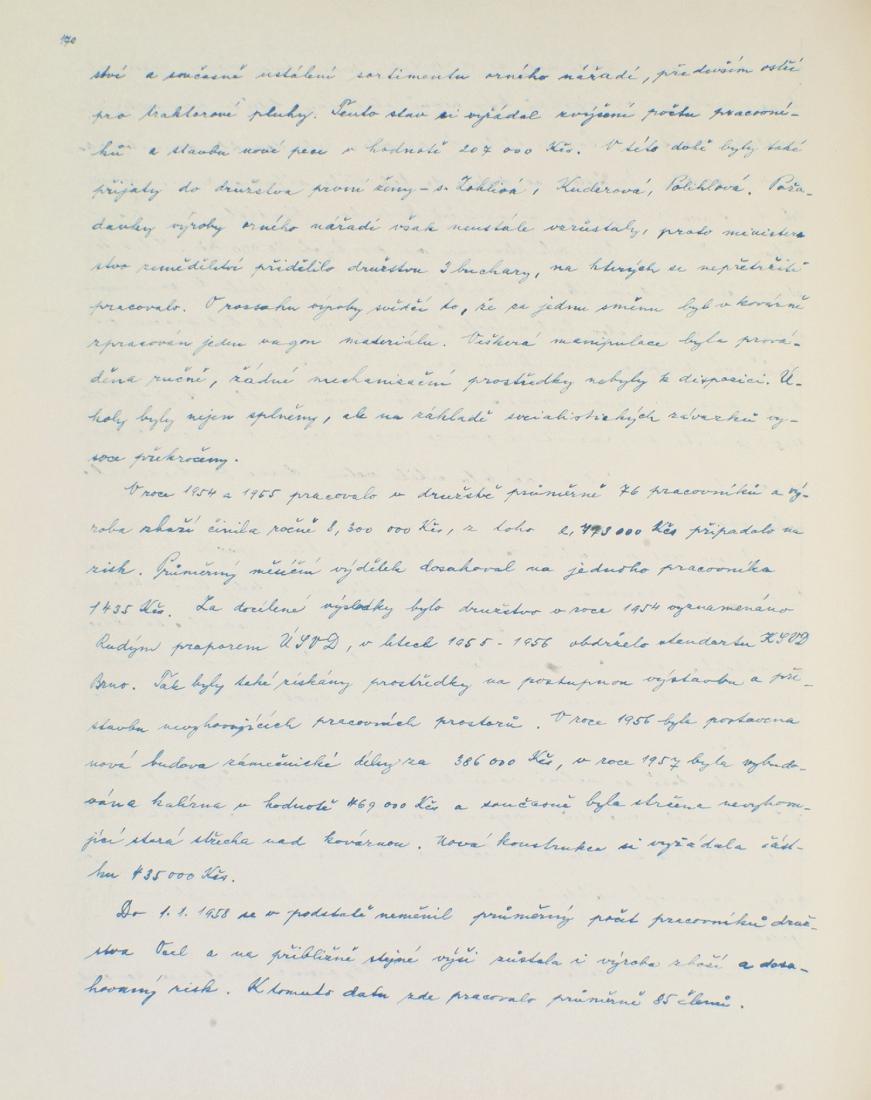 170
ství a současně ustálení sortimentu orného nářadí, především ostří
pro traktorové pluhy. Tento stav si vyžádal zvýšení počtu pracovní-
ků a stavbu nové pece v hodnotě 207 000 Kčs. V této době byly také
přijaty do družstva první ženy – s. Kuderová, Polihlová. Poža-
davky výroby orného nářadí však neustále vzrůstaly, proto minister
stvo zemědělství přidělilo družstvu 3 buchary, na kterých se nepřetržitě
pracovalo. O rozsahu výroby svědčí to, že za jednu směnu byl v kovárně
zpracován jeden vagon materiálu. Veškerá manipulace byla prová-
děna ručně, žádné mechanisační prostředky nebyly k disposici. Ú-
koly byly nejen splněny, ale na základě socialistických závazků vy-
soce překročeny.
V roce 1954 a 1955 pracovalo v družstvě průměrně 76 pracovníků a vý-
roba zboží činila ročně 8,300 000 Kčs, z toho 473 000 Kčs připadalo na
zisk. Průměrný měsíční výdělek dosahoval na jednoho pracovníka
1435 Kčs. Za docílené výsledky bylo družstvo v roce 1954 vyznamenáno
Rudým praporem ÚSVD, v letech 1955 - 1956 obdrželo standartu KSVD
Brno. Tak byly také získány prostředky na postupnou výstavbu a pří-
stavbu nevyhovujících pracovních prostorů. V roce 1956 byla postavena
nová budova zámečnické dílny za 386 000 Kčs, v roce 1957 byla vybudo-
vána kalírna v hodnotě 469 000 Kčs a současně byla stržena nevyhovu-
jící stará střecha nad kovárnou. Nová konstrukce si vyžádala část-
ku 435 000 Kčs.
Do 1. 1. 1958 se v podstatě neměnil průměrný počet pracovníků druž-
stva Ocel a na přibližně stejné výši zůstala i výroba zboží a dosa-
hovaný zisk. K tomuto datu zde pracovalo průměrně 85 členů.